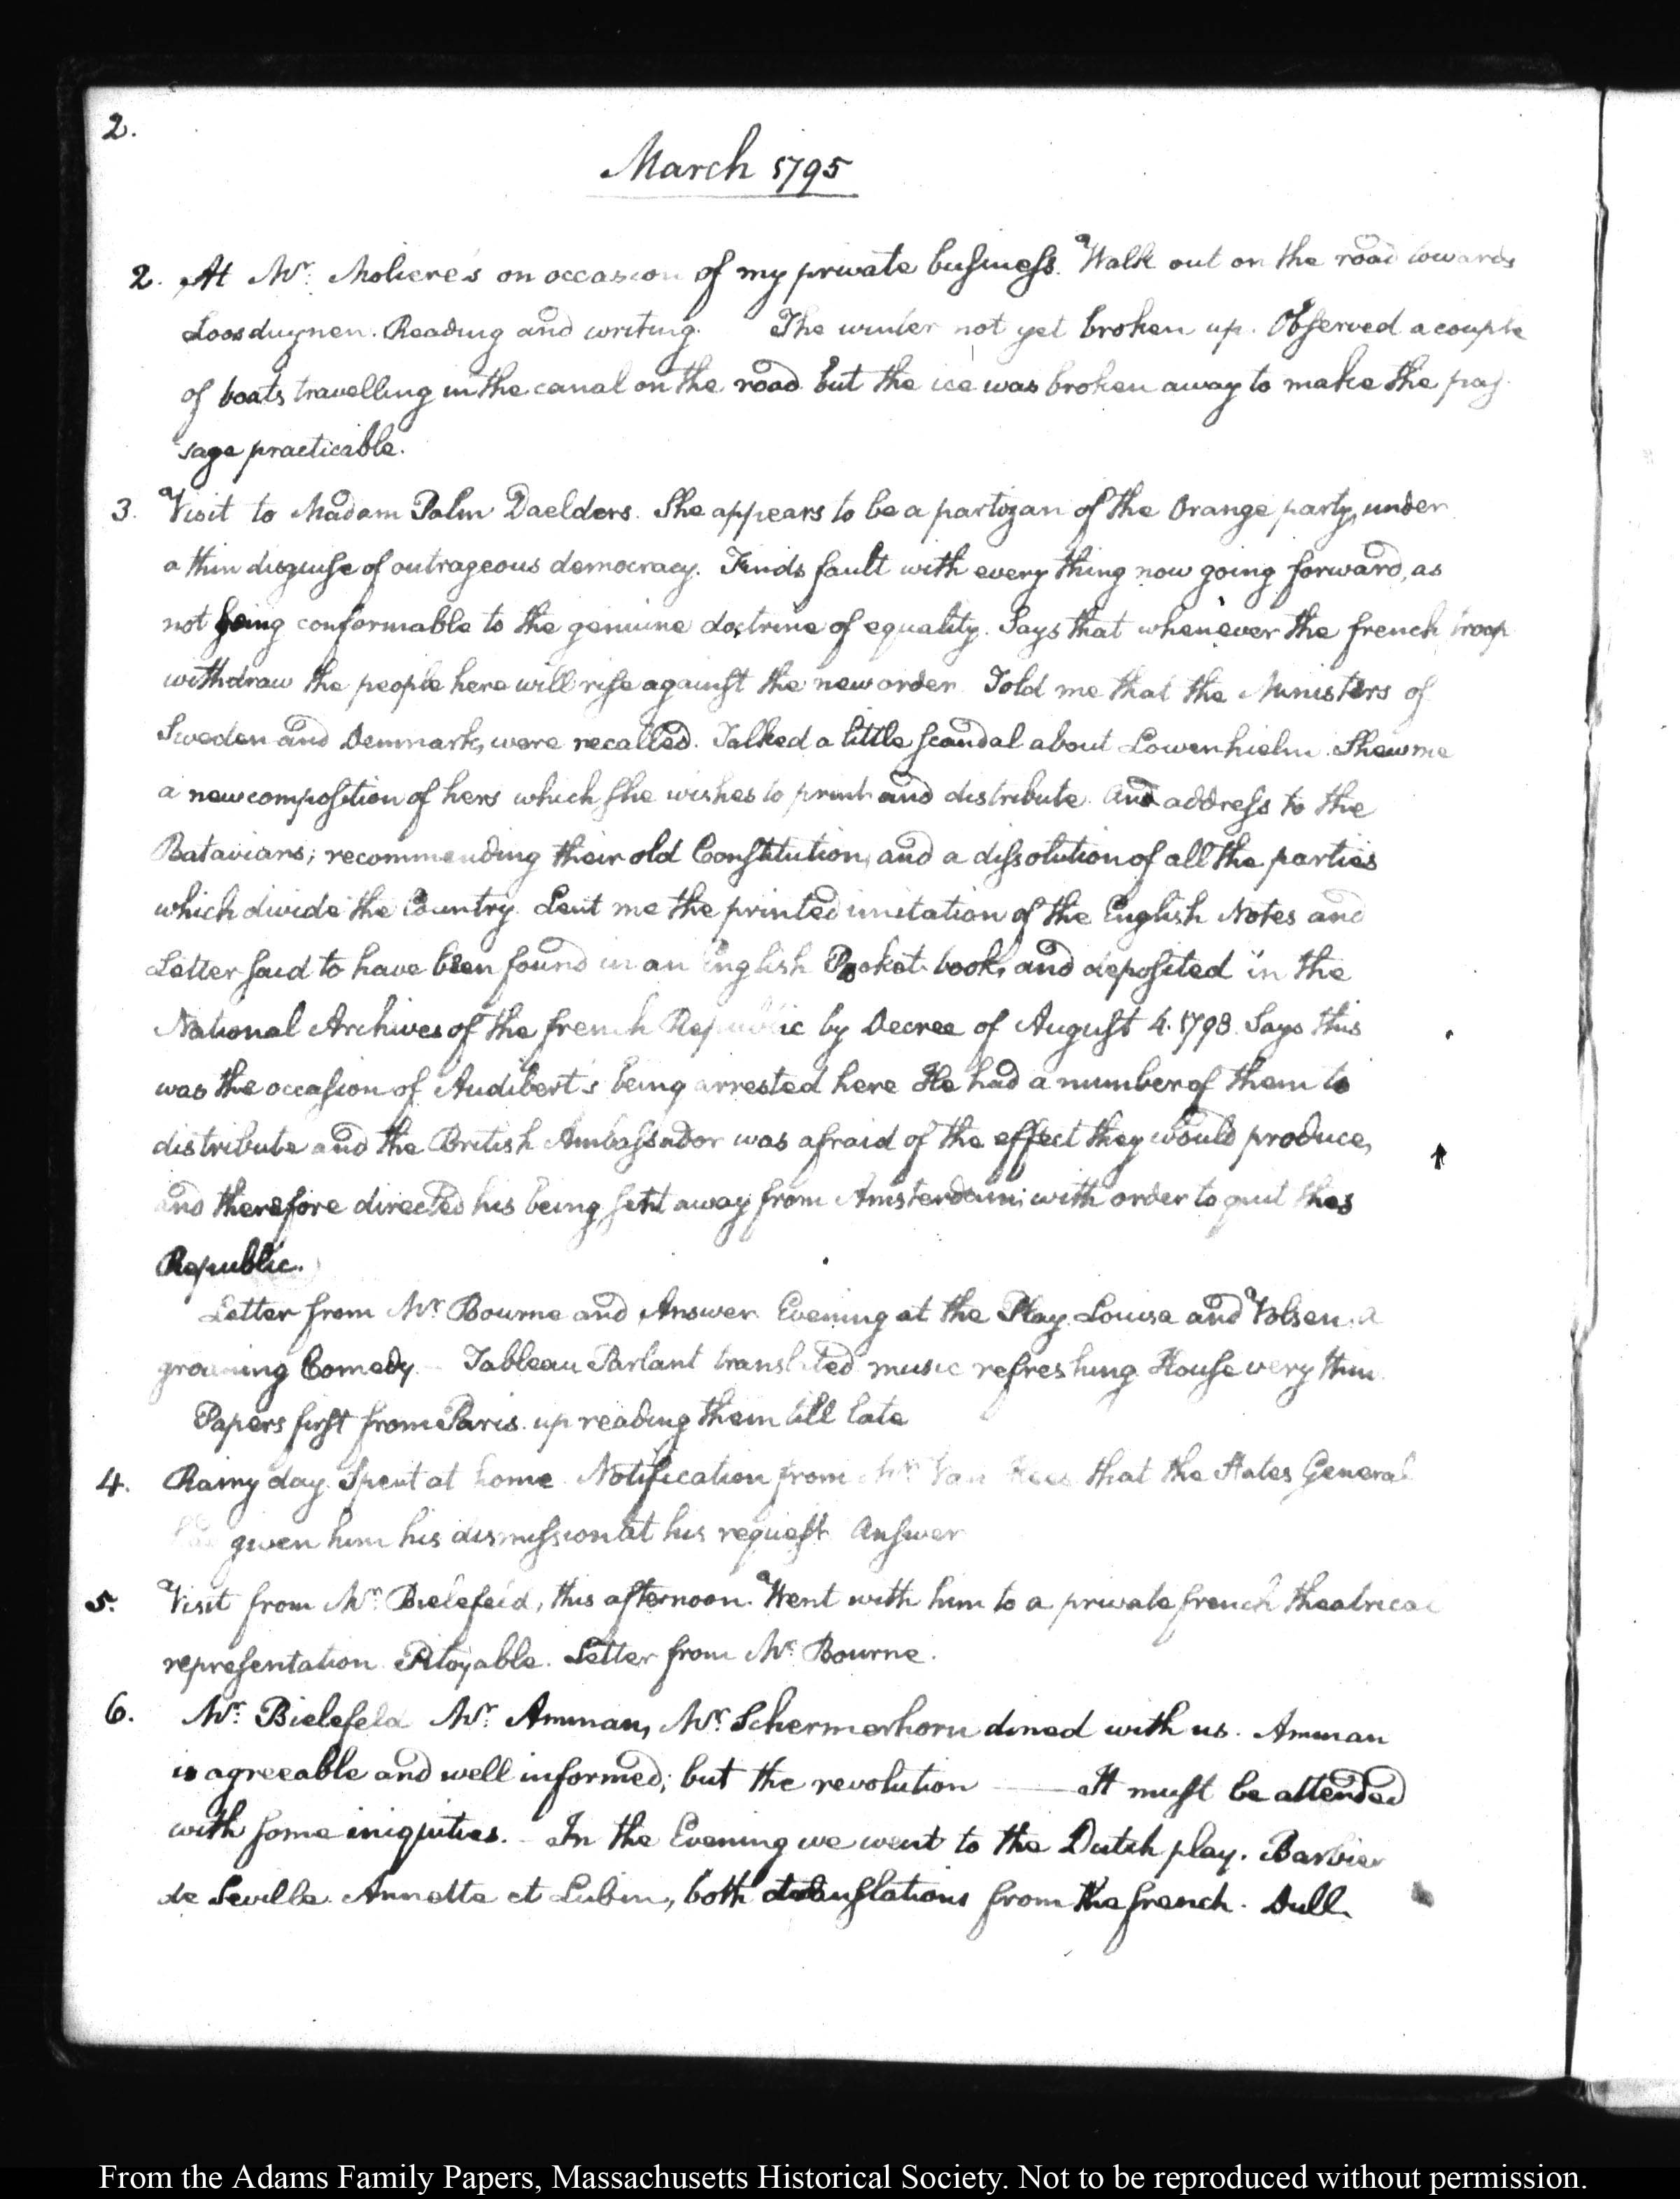 2.
March 1795
2. At Mr. Moliere's on occasion of my private business. Walk out on the road towards
Loosduynen. Reading and writing. The winter not yet broken up. Observed a couple
of boats travelling in the canal on the road but the ice was broken away to make the pas-
sage practicable.
3. Visit to Madam Palm Daelders. She appears to be a partizan of the Orange party, under
a thin disguise of outrageous democracy. Finds fault with every thing now going forward, as
not being conformable to the genuine doctrine of equality. Says that whenever the french troop
withdraw the people here will rise against the new order. Told me that the Ministers of
Sweden and Denmark, were recalled. Talked a little scandal about Lowenhielm. Shew me
a new composition of hers which she wishes to print and distribute. And address to the
Batavians; recommending their old Constitution, and a dissolution of all the parties
which divide the Country. Lent me the printed imitation of the English Notes and
Letter said to have been found in an English Pocket-book, and deposited in the
National Archives of the french Republic by Decree of August 4. 1793. Says this
was the occasion of Audibert's being arrested here He had a number of them to
distribute and the British Ambassador was afraid of the effect they would produce,
and therefore directed his being sent away from Amsterdam; with order to quit the
Republic.
Letter from Mr. Bourne and Answer. Evening at the Play. Louisa and Volsen. a
groaning Comedy — Tableau Parlant translated music refreshing. House very thin.
Papers first from Paris. up reading them till late
4. Rainy day. Spent at home. Notification from Mr. Van Hees that the States General
had given him his dismission at his request. Answer
5. Visit from Mr. Bielefeld, this afternoon. Went with him to a private french theatrical
representation. Pitoyable. Letter from Mr. Bourne.
6. Mr. Bielefeld Mr. Amman, Mr. Schermerhorn dined with us. Amman
is agreeable and well informed; but the revolution —— It must be attended
with some iniquities. — In the Evening we went to the Dutch play. Barbier
de Seville. Annette et Lubin, both translations from the french. Dull.
From the Adams Family Papers, Massachusetts Historical Society. Not to be reproduced without permission.